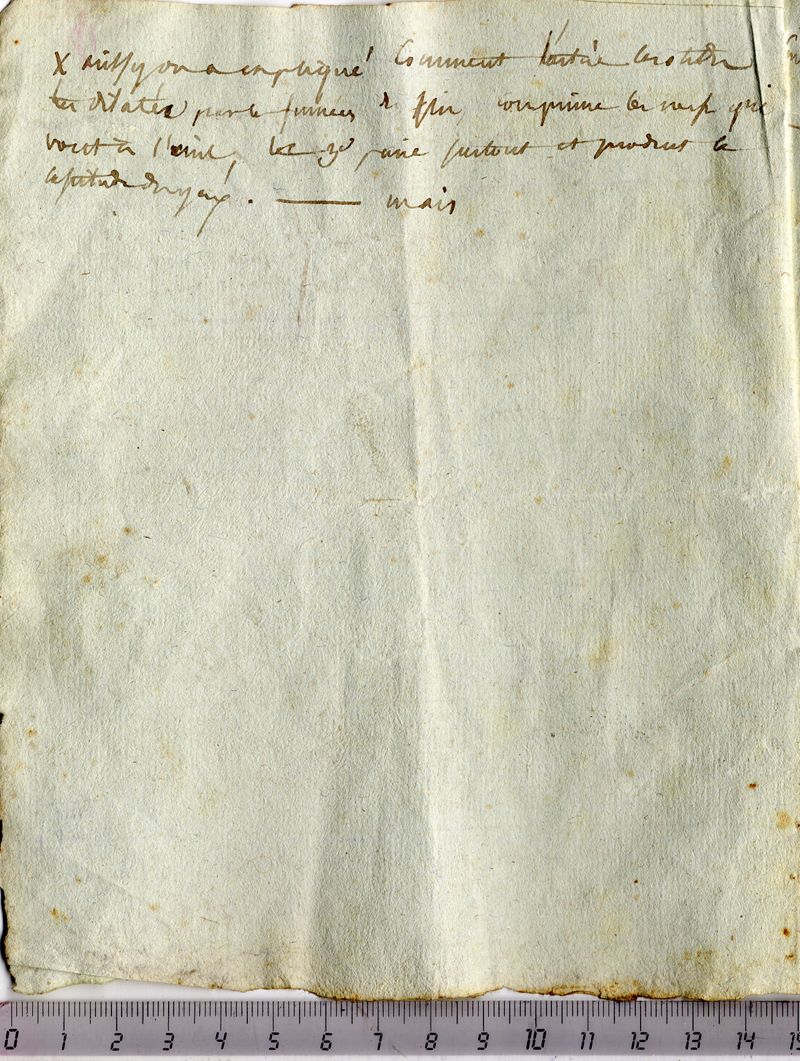 X ainsy on a expliqué Comment l'artère carotide
dilatée par les fumées du vin comprime les nerfs qui
vont à l'oeil, la 3e paire surtout et produit la
des yeux. — mais
0 1 2 3 4 5 6 7 8 9 10 11 12 13 14 15